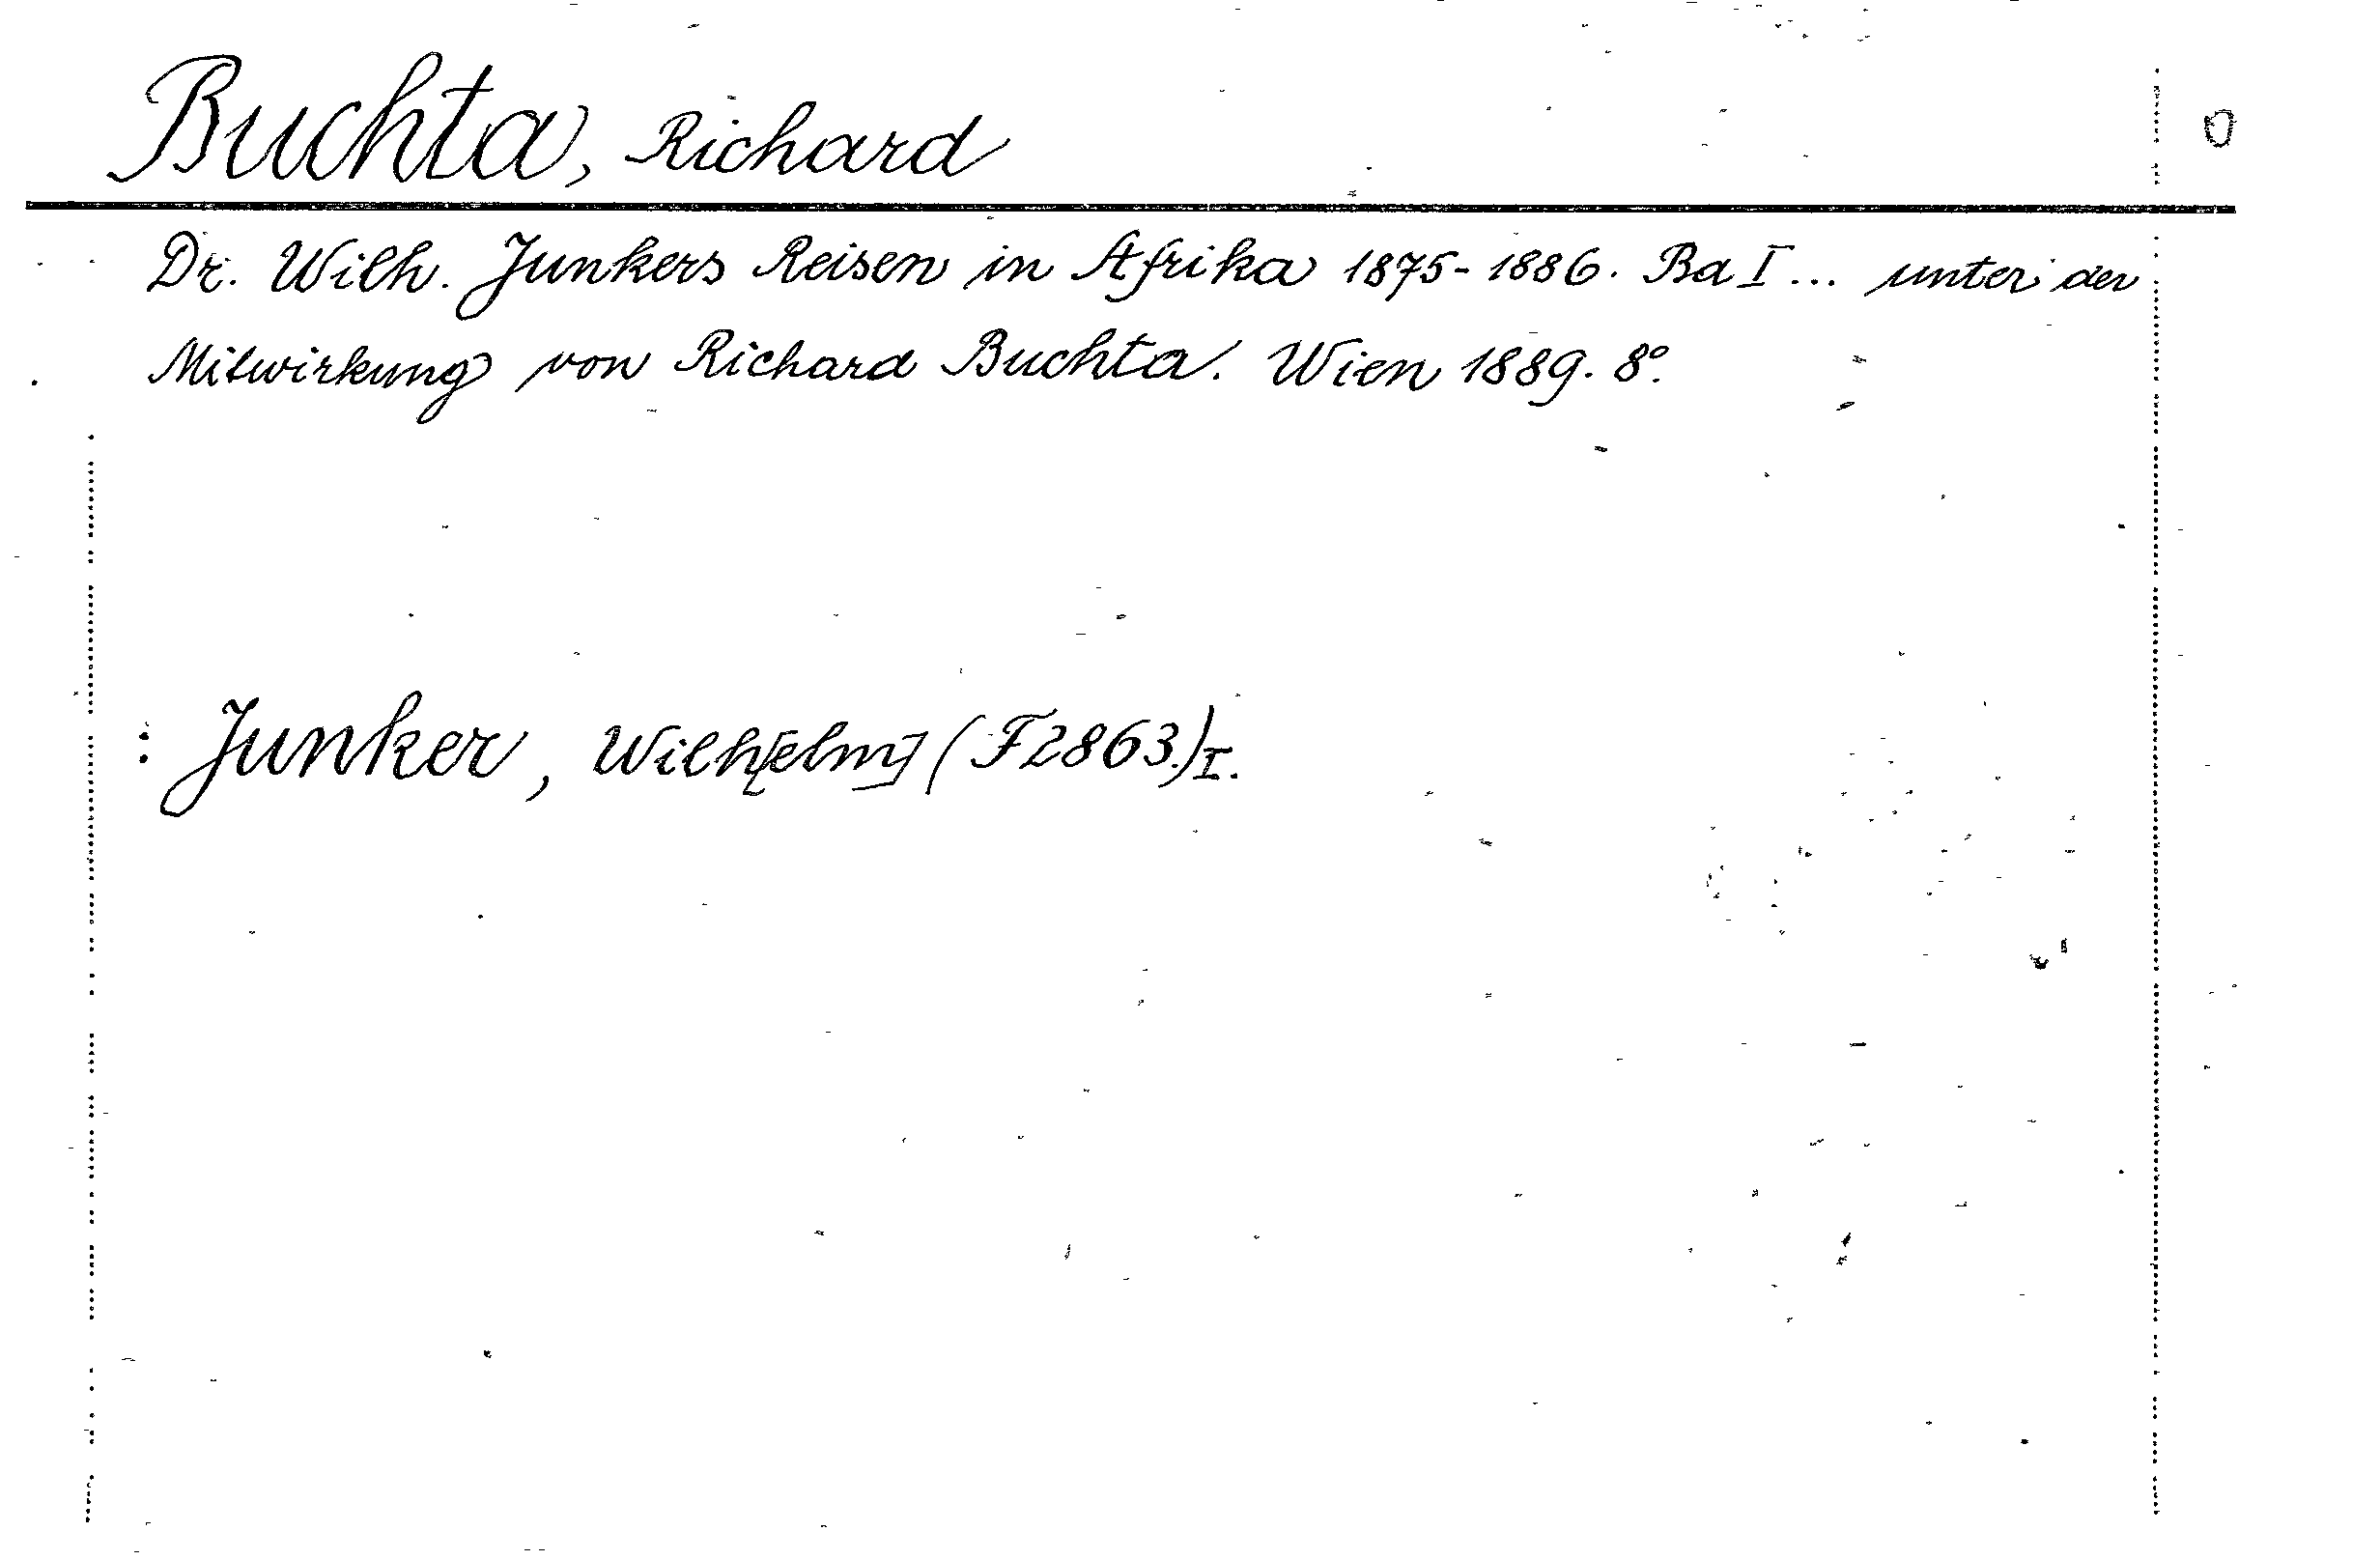 Buchta, Richard
Dr. Wilh. Junkers Reisen in Afrika 1875-1886. Bd I... unter der
Mitwirkung von Richard Buchta. Wien 1889. 8°.
: Junker, Wilh[elm] (F2863.) I.